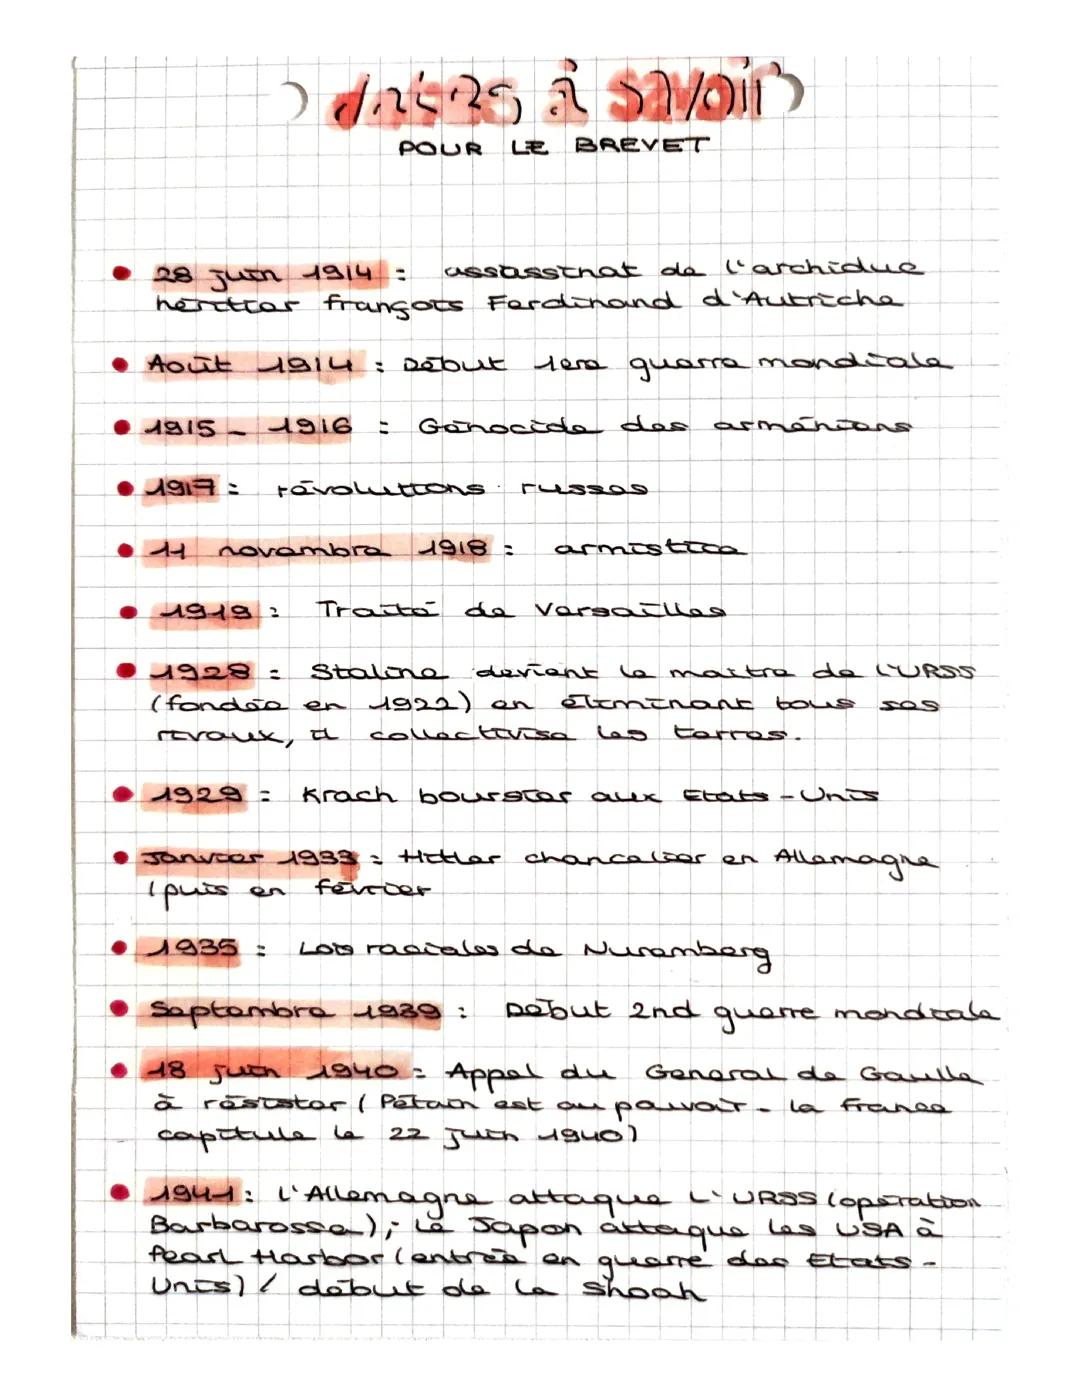 dates à savoir
POUR LE BREVET
28 juin 1914 : assassinat de l'archiduc
héritier françois Ferdinand d'Autriche
Août 1914 : Début 1ere guerre mondiale
1915 - 1916 : Génocide des arméniens
1917 : révolutions russes
11 novembre 1918 : armistice
1919 : Traité de Versailles
1928 : Staline devient le maitre de l'URSS
(fondée en 1922) en éliminant tous ses
rivaux, il collectivise les terres.
1929 : Krach boursier aux Etats-Unis
Janvier 1933 : Hitler chancelier en Allemagne
(puis en février
1935 : Lois raciales de Nuremberg
Septembre 1939 : Début 2nd guerre mondiale
18 juin 1940 : Appel du General de Gaulle
à résister (Pétain est au pouvoir - la france
capitule le 22 juin 1940)
1941 : L'Allemagne attaque L'URSS (opération
Barbarossa) ; Le Japon attaque les USA à
Pearl Harbor (entrée en guerre des Etats-
Unis) / début de la Shoah